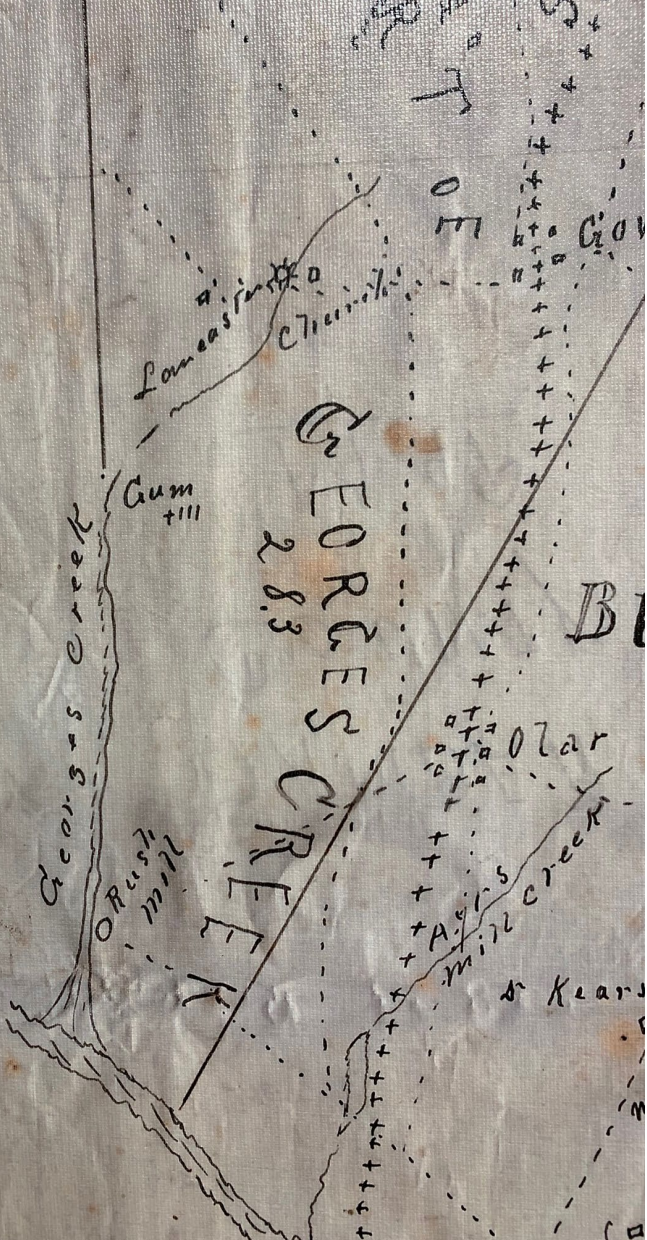 OF
Gov
Lancaster
Church
Gum
+111
GEORGES CREEK
283
Georges Creek
B
Olar
Rush
Mill
Ayrs
Mill Creek
Kears